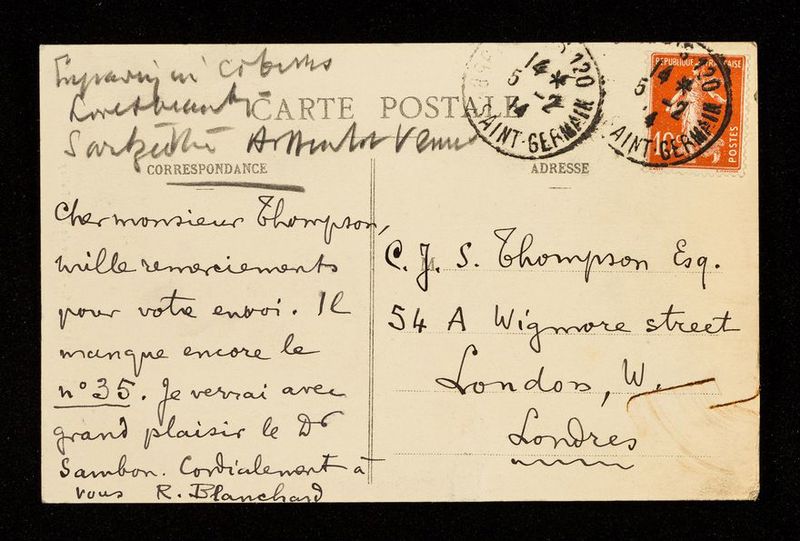 Engraving in
CARTE POSTALE
CORRESPONDANCE
ADRESSE
Cher monsieur Thompson,
mille remerciements
pour votre envoi. Il
manque encore le
n° 35. Je verrai avec
grand plaisir le Dr
Sambon. Cordialement à
vous R. Blanchard
C. J. S. Thompson Esq.
54 A Wigmore street
London, W.
Londres
120
14 *
5 -2
14
SAINT-GERMAIN
120
14 *
5 -2
14
SAINT-GERMAIN
REPUBLIQUE FRANÇAISE
10
POSTES